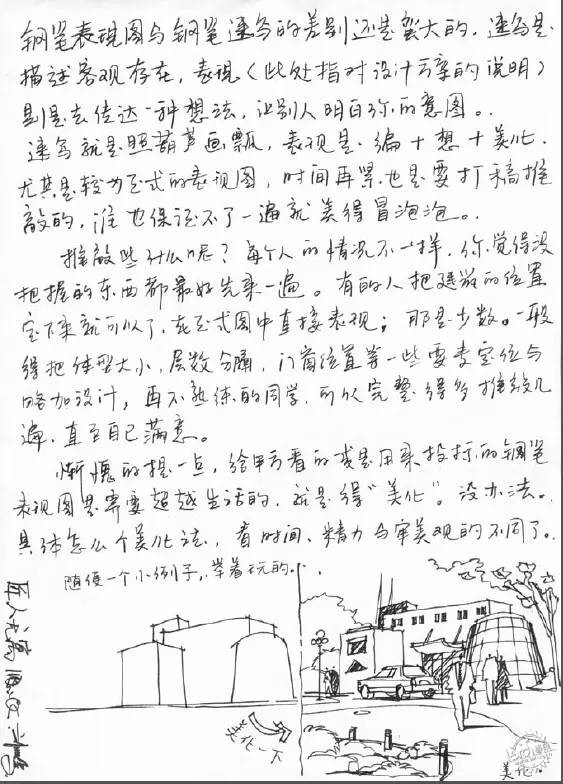 钢笔表现图与钢笔速写的差别还是蛮大的。速写是
描述客观存在，表现（此处指对设计方案的说明）
则是去传达一种想法，让别人明白你的意图。
速写就是照葫芦画瓢，表现是编＋想＋美化。
尤其是较为正式的表现图，时间再紧也是要打稿推
敲的，谁也保证不了一遍就美得冒泡泡。
推敲些什么呢？每个人的情况不一样，你觉得没
把握的东西都最好先来一遍。有的人把建筑的位置
定下来就可以了，在正式图中直接表现；那是少数。一般
得把体型大小，层数分隔，门窗位置等一些要素定位与
略加设计，再不熟练的同学，可以完整得多推敲几
遍，直至自己满意。
惭愧的提一点，给甲方看的或是用来投标的钢笔
表现图是需要超越生活的，就是得“美化”。没办法。
具体怎么个美化法，看时间、精力与审美观的不同了。
随便一个小例子，举着玩的...
美化一下
美化